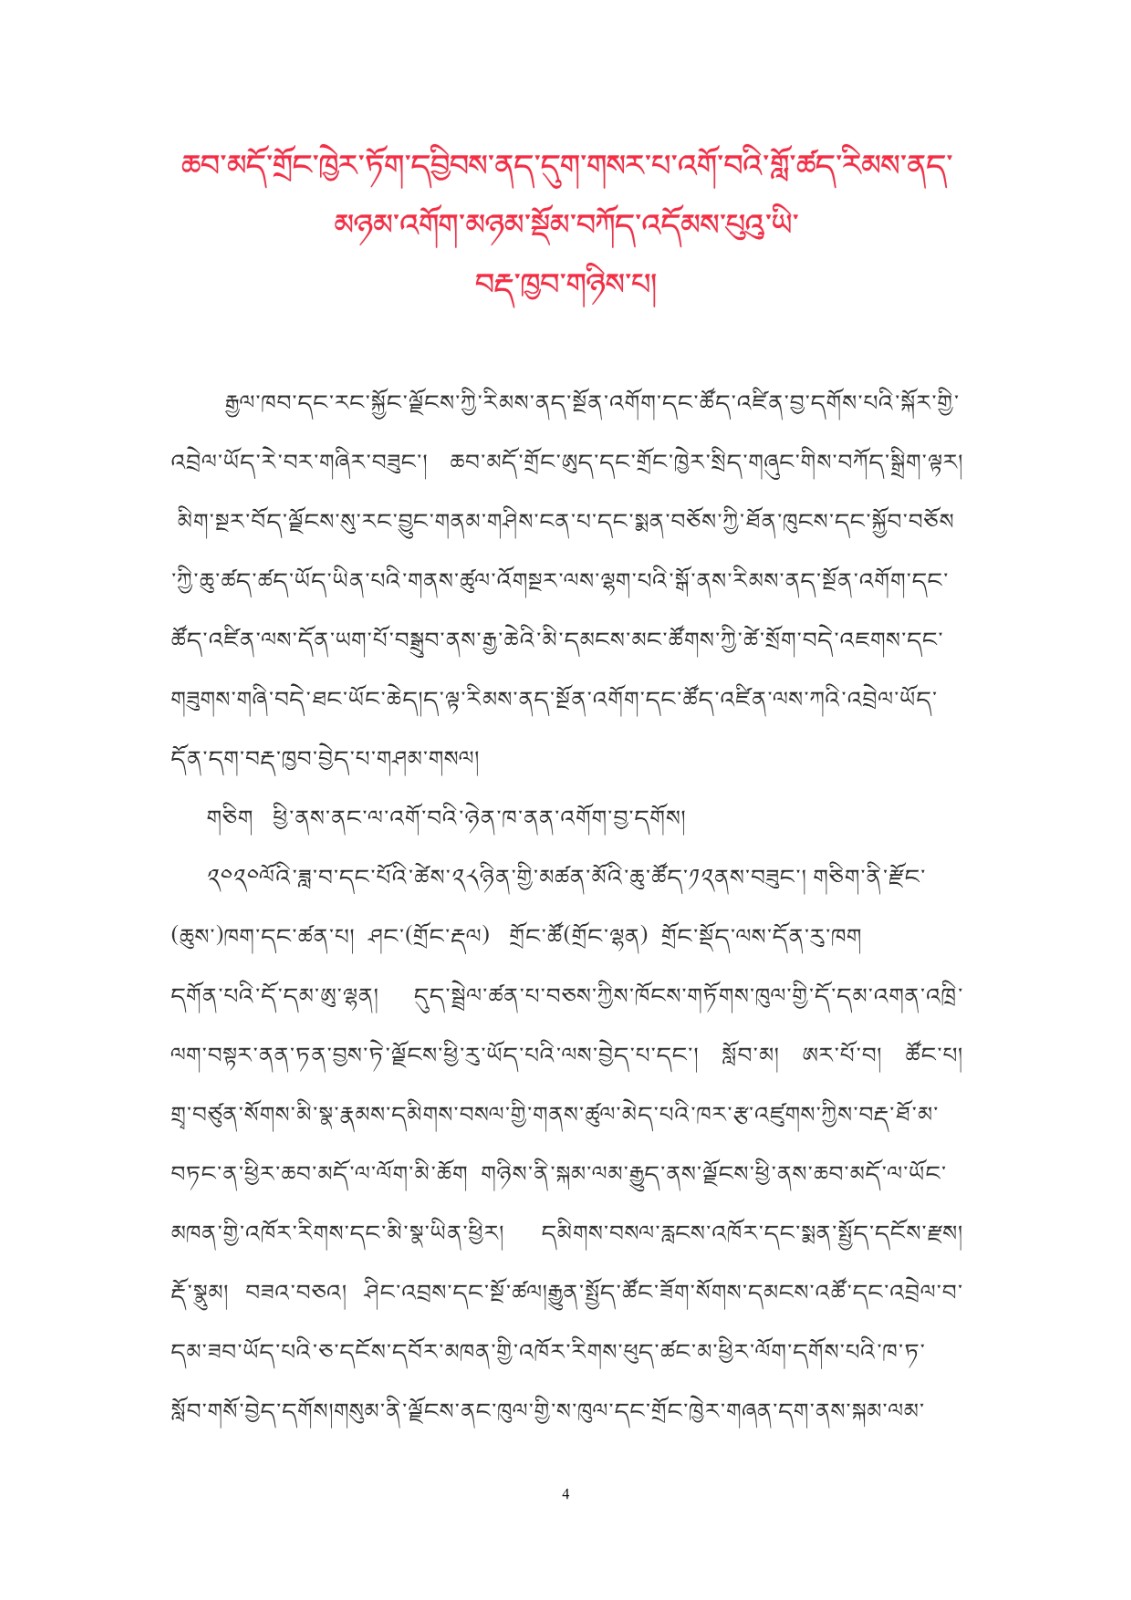 ཆབ་མདོ་གྲོང་ཁྱེར་ཏོག་དབྱིབས་ནད་དུག་གསར་པ་འགོ་བའི་གློ་ཚད་རིམས་ནད་
མཉམ་འགོག་མཉམ་སྡོམ་བཀོད་འདོམས་པུའུ་ཡི་
བརྡ་ཁྱབ་གཉིས་པ།
རྒྱལ་ཁབ་དང་རང་སྐྱོང་ལྗོངས་ཀྱི་རིམས་ནད་སྔོན་འགོག་དང་ཚོད་འཛིན་བྱ་དགོས་པའི་སྐོར་གྱི་
འབྲེལ་ཡོད་རེ་བར་གཞིར་བཟུང་། ཆབ་མདོ་གྲོང་ཨུད་དང་གྲོང་ཁྱེར་སྲིད་གཞུང་གིས་བཀོད་སྒྲིག་ལྟར།
མིག་སྔར་བོད་ལྗོངས་སུ་རང་བྱུང་གནམ་གཤིས་ངན་པ་དང་སྨན་བཅོས་ཀྱི་ཐོན་ཁུངས་དང་སྐྱོབ་བཅོས
་ཀྱི་ཆུ་ཚད་ཚད་ཡོད་ཡིན་པའི་གནས་ཚུལ་འོགསྔར་ལས་ལྷག་པའི་སྒོ་ནས་རིམས་ནད་སྔོན་འགོག་དང་
ཚོད་འཛིན་ལས་དོན་ཡག་པོ་བསྒྲུབ་ནས་རྒྱ་ཆེའི་མི་དམངས་མང་ཚོགས་ཀྱི་ཚེ་སྲོག་བདེ་འཇགས་དང་
གཟུགས་གཞི་བདེ་ཐང་ཡོང་ཆེད།ད་ལྟ་རིམས་ནད་སྔོན་འགོག་དང་ཚོད་འཛིན་ལས་ཀའི་འབྲེལ་ཡོད་
དོན་དག་བརྡ་ཁྱབ་བྱེད་པ་གཤམ་གསལ།
གཅིག ཕྱི་ནས་ནང་ལ་འགོ་བའི་ཉེན་ཁ་ནན་འགོག་བྱ་དགོས།
༢༠༢༠ལོའི་ཟླ་བ་དང་པོའི་ཚེས་༢༨ཉིན་གྱི་མཚན་མོའི་ཆུ་ཚོད་༡༢ནས་བཟུང་། གཅིག་ནི་རྫོང་
(ཆུས་)ཁག་དང་ཚན་པ། ཤང་(གྲོང་རྡལ) གྲོང་ཚོ(གྲོང་ལྷན) གྲོང་སྡོད་ལས་དོན་རུ་ཁག
དགོན་པའི་དོ་དམ་ཨུ་ལྷན། དུད་སྦྲེལ་ཚན་པ་བཅས་ཀྱིས་ཁོངས་གཏོགས་ཁུལ་གྱི་དོ་དམ་འགན་འཁྲི་
ལག་བསྟར་ནན་ཏན་བྱས་ཏེ་ལྗོངས་ཕྱི་རུ་ཡོད་པའི་ལས་བྱེད་པ་དང་། སློབ་མ། ཨར་པོ་བ། ཚོང་པ།
གྲྭ་བཙུན་སོགས་མི་སྣ་རྣམས་དམིགས་བསལ་གྱི་གནས་ཚུལ་མེད་པའི་ཁར་རྩ་འཛུགས་ཀྱིས་བརྡ་ཐོ་མ་
བཏང་ན་ཕྱིར་ཆབ་མདོ་ལ་ལོག་མི་ཆོག གཉིས་ནི་སྐམ་ལམ་རྒྱུད་ནས་ལྗོངས་ཕྱི་ནས་ཆབ་མདོ་ལ་ཡོང་
མཁན་གྱི་འཁོར་རིགས་དང་མི་སྣ་ཡིན་ཕྱིར། དམིགས་བསལ་རླངས་འཁོར་དང་སྨན་སྤྱོད་དངོས་རྫས།
རྡོ་སྣུམ། བཟའ་བཅའ། ཤིང་འབྲས་དང་སྔོ་ཚལ།རྒྱུན་སྤྱོད་ཚོང་ཟོག་སོགས་དམངས་འཚོ་དང་འབྲེལ་བ་
དམ་ཟབ་ཡོད་པའི་ཅ་དངོས་དབོར་མཁན་གྱི་འཁོར་རིགས་ཕུད་ཚང་མ་ཕྱིར་ལོག་དགོས་པའི་ཁ་ཏ་
སློབ་གསོ་བྱེད་དགོས།གསུམ་ནི་ལྗོངས་ནང་ཁུལ་གྱི་ས་ཁུལ་དང་གྲོང་ཁྱེར་གཞན་དག་ནས་སྐམ་ལམ་
4